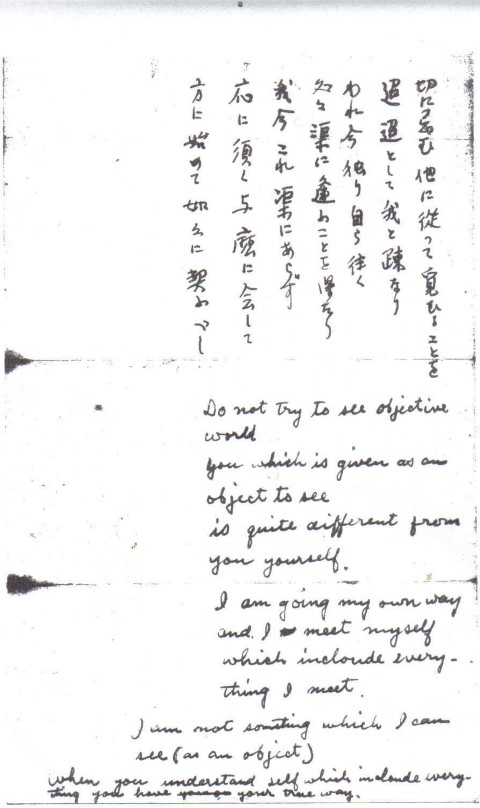 切に忌む他に従って覓むることを
迢迢として我と疎なり
われ今独り自ら往く
処々渠に逢ふことを得たり
我今これ渠にあらず
応に須く与麼に会して
方に始めて如々に契ふべし
Do not try to see objective
world
you which is given as an
object to see
is quite different from
you yourself.
I am going my own way
and I meet myself
which incloude every-
thing I meet.
I am not somting which I can
see (as an object)
When you understand self which incloude every-
thing you have your true way.